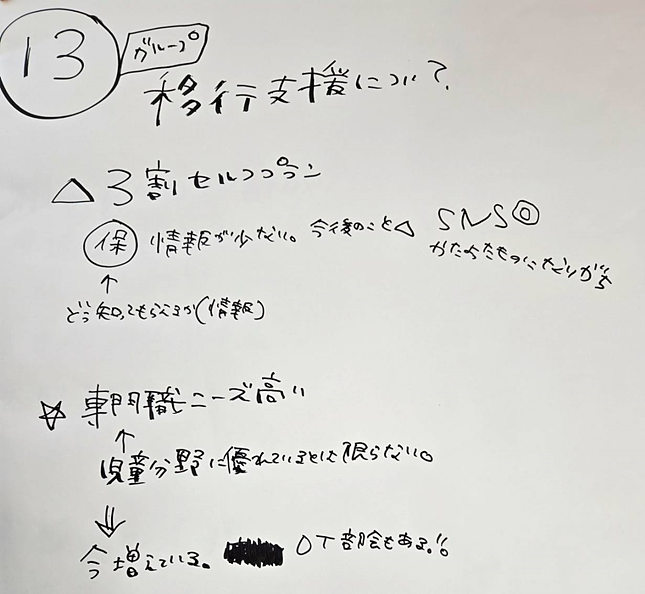 13 グループ
移行支援について
△ 3割セルフプラン
保 情報が少ない。今後のこと△ SNS◎
かたよったものになりがち
↑
どう知ってもらえるか(情報)
☆ 専門職ニーズ高い
↑
児童分野に優れているとは限らない。
⇓
今増えている。 OT部会もある!!